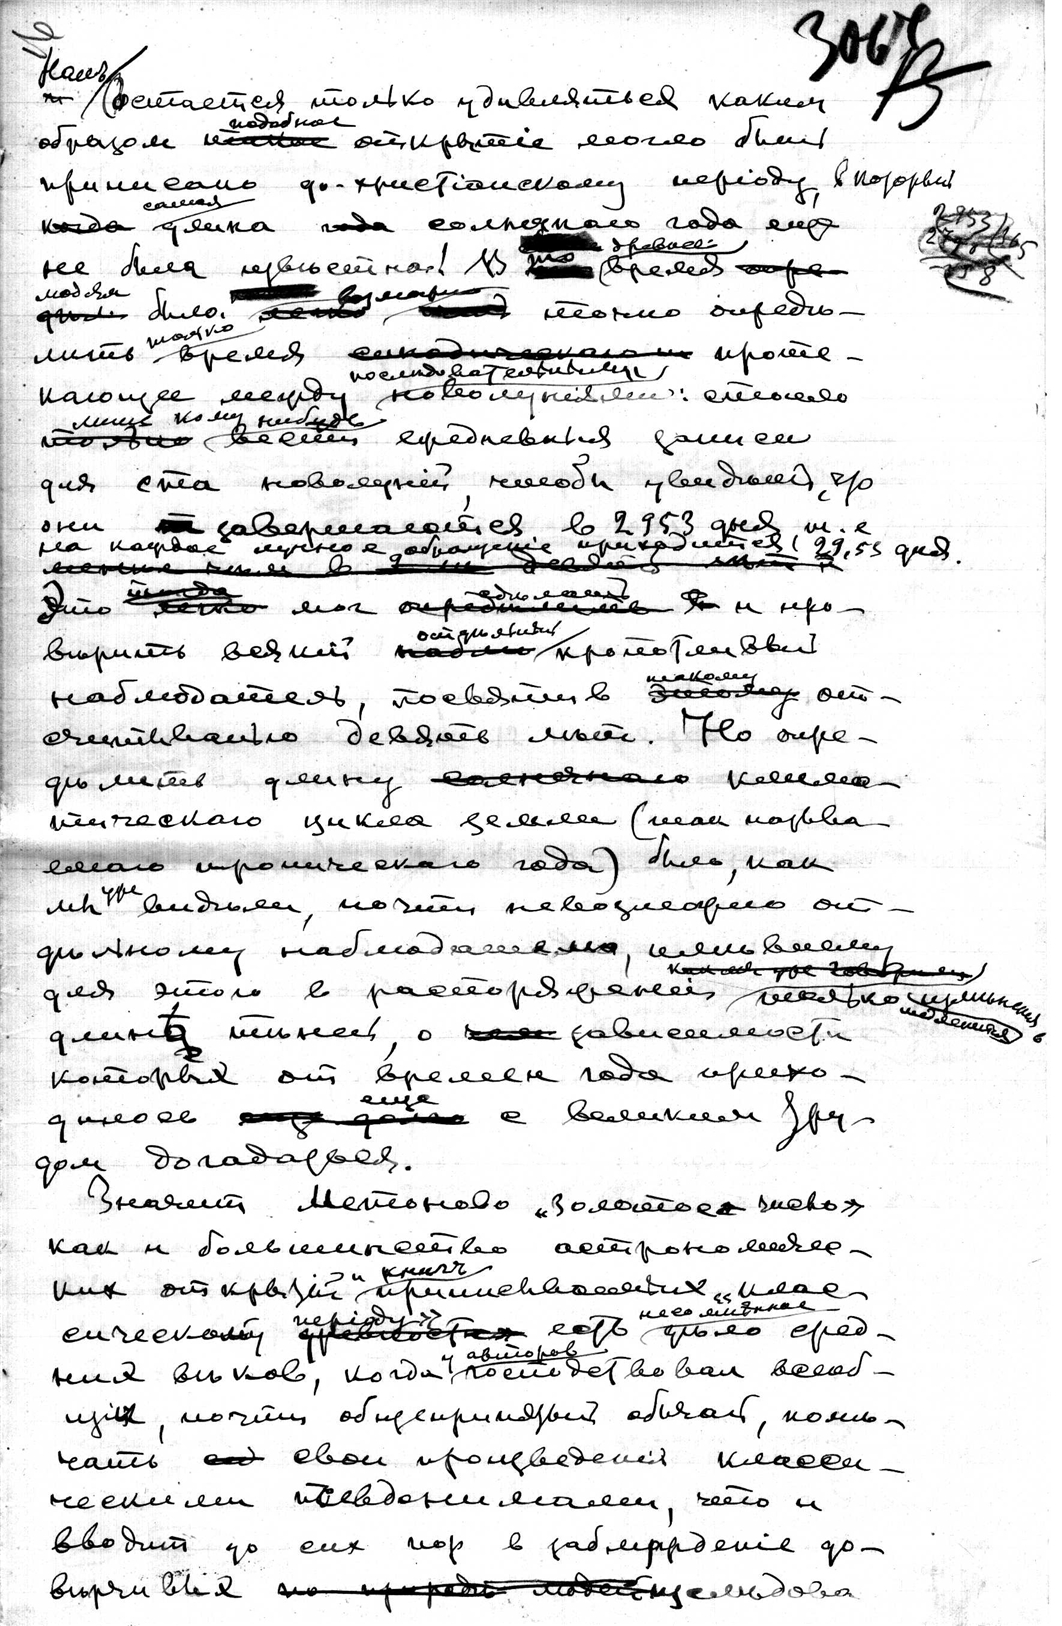 3067
Намъ
остается только удивляться каким
образом подобное открытіе могло быть
приписано до-христіанскому періоду, в который
самая длина солнечнаго года еще
не была извѣстна! В то древнее время
людям было возможно точно опредѣ-
лить только время проте-
кающее между последовательными новолуніями: стоило
лишь кому нибудь вести ежедневныя записи
для ста новолуній, чтобы увидѣть, что
они завершаются в 2953 дня т. е
на каждое лунное обращеніе приходится 29,53 дня.
Это тогда мог сдѣлать и про-
вѣрить всякій отдѣльный кропотливый
наблюдатель, посвятив такому от-
считыванію девять лѣт. Но опре-
дѣлить длину клима-
тическаго цикла земли (так называ-
емаго тропическаго года) было, как
мы уже видѣли, почти невозможно от-
дѣльному наблюдателю, имѣвшему
для этого в распоряженіи только измѣненія в
длинѣ тѣней, о зависимости
которых от времен года прихо-
дилось еще с великим тру-
дом догадаться.
Значит Метоново „золотое число»
как и большинство астрономичес-
ких открытій и книг приписываемых „клас-
сическому періоду» есть несомнѣнное дѣло сред-
них вѣков, когда у авторов господствовал всеоб-
щій, почти общепринятый обычай, помѣ-
чать свои произведенія класси-
ческими псевдонимами, что и
вводит до сих пор в заблужденіе до-
вѣрчивых изслѣдова